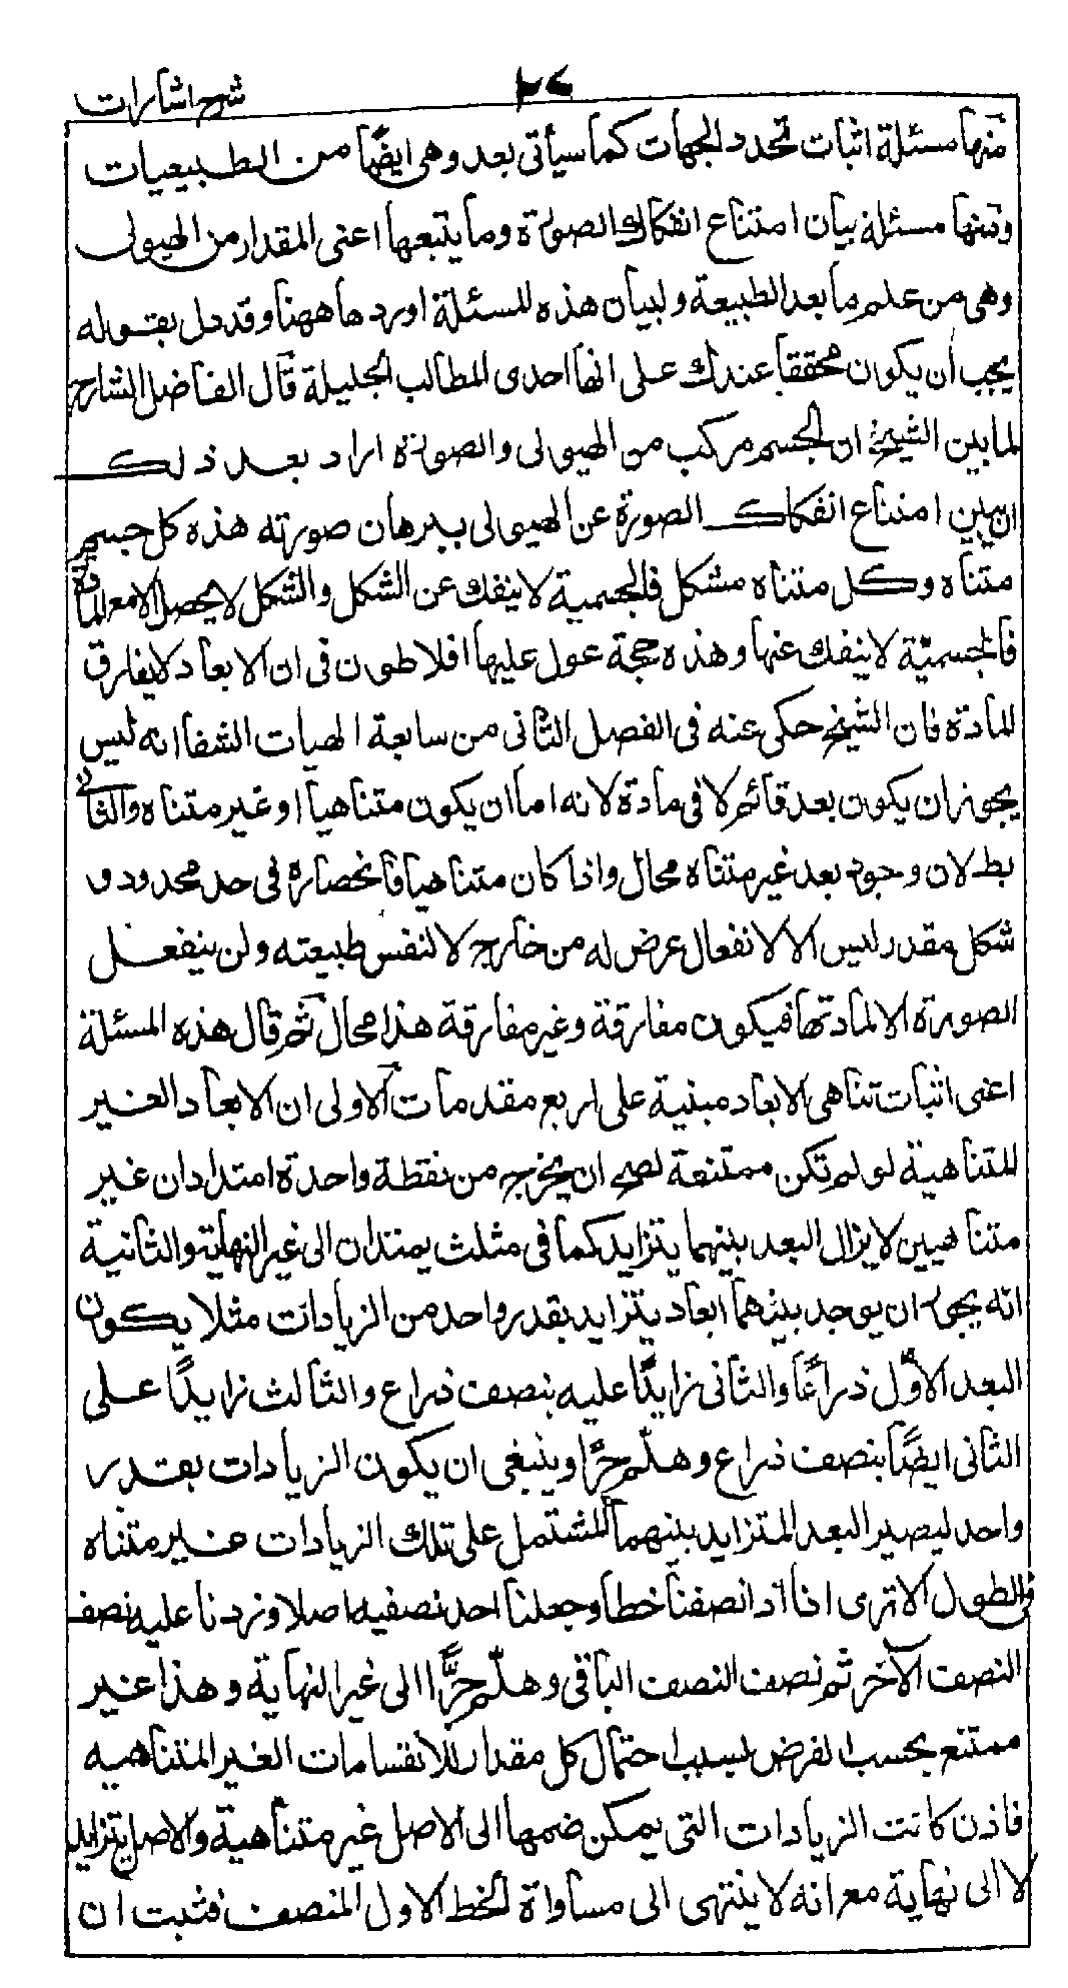 شرح اشارات
٢٤
منها مسئلة اثبات تحدد الجهات كما سيأتى بعد وهى ايضًا من الطبيعيات
ومنها مسئلة بيان امتناع انفكاك الصورة وما يتبعها اعنى المقدار من الهيولى
وهى من علم ما بعد الطبيعة ولبيان هذه المسئلة اوردها ههنا وقد دل بقوله
يجب ان يكون محققا عندك على انها احدى المطالب الجليلة قال الفاضل الشارح
لما بين الشيخ ان الجسم مركب من الهيولى والصورة اراد بعد ذلك
ان يبين امتناع انفكاك الصورة عن الهيولى ببرهان صورته هذه كل جسم
متناه وكل متناه مشكل فالجسمية لا ينفك عن الشكل والشكل لا يحصل الا مع المادة
فالجسميّة لا ينفك عنها وهذه حجة عول عليها افلاطون فى ان الابعاد لا يفارق
المادة فان الشيخ حكى عنه فى الفصل الثانى من سابعة الهيات الشفا انه ليس
يجوز ان يكون بعد قائم لا فى مادة لانه اما ان يكون متناهيا او غير متناه والثانى
بط لان وجود بعد غير متناه محال واذا كان متناهيا فانحصاره فى حد محدود و
شكل مقدر ليس الا لانفعال عرض له من خارج لا لنفس طبيعته ولن ينفعل
الصورة الا لمادتها فيكون مفارقة وغير مفارقة هذا محال ثم قال هذه المسئلة
اعنى اثبات تناهى الابعاد مبنية على اربع مقدمات الاولى ان الابعاد الغير
المتناهية لو لم تكن ممتنعة لصح ان يخرج من نقطة واحدة امتدادان غير
متناهيين لا يزال البعد بينهما يتزايد كما فى مثلث يمتدان الى غير النهاية والثانية
انه يجوز ان يوجد بينهما ابعاد يتزايد بقدر واحد من الزيادات مثلا يكون
البعد الاوّل ذراعًا والثانى زايدًا عليه بنصف ذراع والثالث زايدًا على
الثانى ايضًا بنصف ذراع وهلّم جرًّا وينبغى ان يكون الزيادات بقدر
واحد ليصير البعد المتزايد بينهما المشتمل على تلك الزيادات غير متناه
فى الطول الا ترى اذا نصفنا خطا وجعلنا احد نصفيه اصلا وزدنا عليه نصف
النصف الآخر ثم نصف النصف الباقى وهلّم جرًّا الى غير النهاية وهذا غير
ممتنع بحسب الفرض بسبب احتمال كل مقدار للانقسامات الغير المتناهيه
فاذن كانت الزيادات التى يمكن ضمها الى الاصل غير متناهية والاصل يتزايد
لا الى نهاية مع انه لا ينتهى الى مساواة الخط الاول المنصف فثبت ان